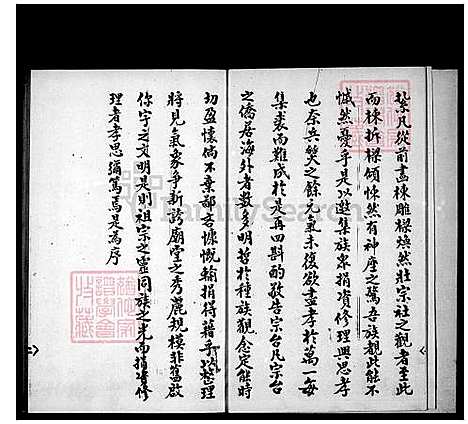 蘖凡從前畫棟雕樑煥然壯宗社之觀者至此
而棟折樑傾怵然有神座之驚吾族覩此能不
慽然憂乎是以邀集族衆捐資修理與思孝
也奈兵燹之餘元氣未復欲盡孝於萬一每
集裘而難成於是再四斟酌敬告宗台凡宗台
之僑居海外者數多明哲於種族觀念定能時
切盈懷倘不棄鄙吝慷慨輸捐得藉手以整理
將見氣象爭新誇廟堂之秀麗規模非舊啟
你宇之文明是則祖宗之靈同族之光而捐資修
理者孝思彌篤焉是為序
FamilySearch